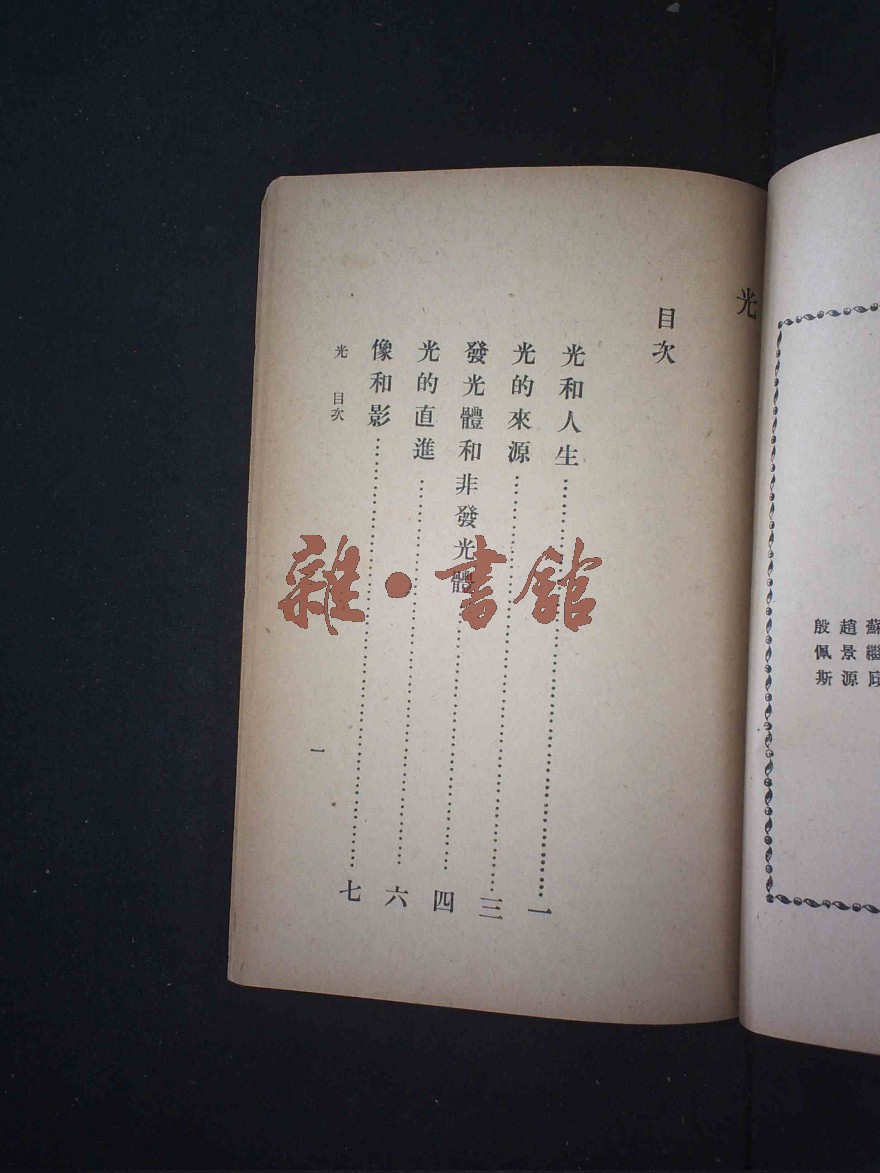 光
目次
光和人生 一
光的來源 三
發光體和非發光體 四
光的直進 六
像和影 七
光 目次
一
趙景源
殷佩斯
雜·書館